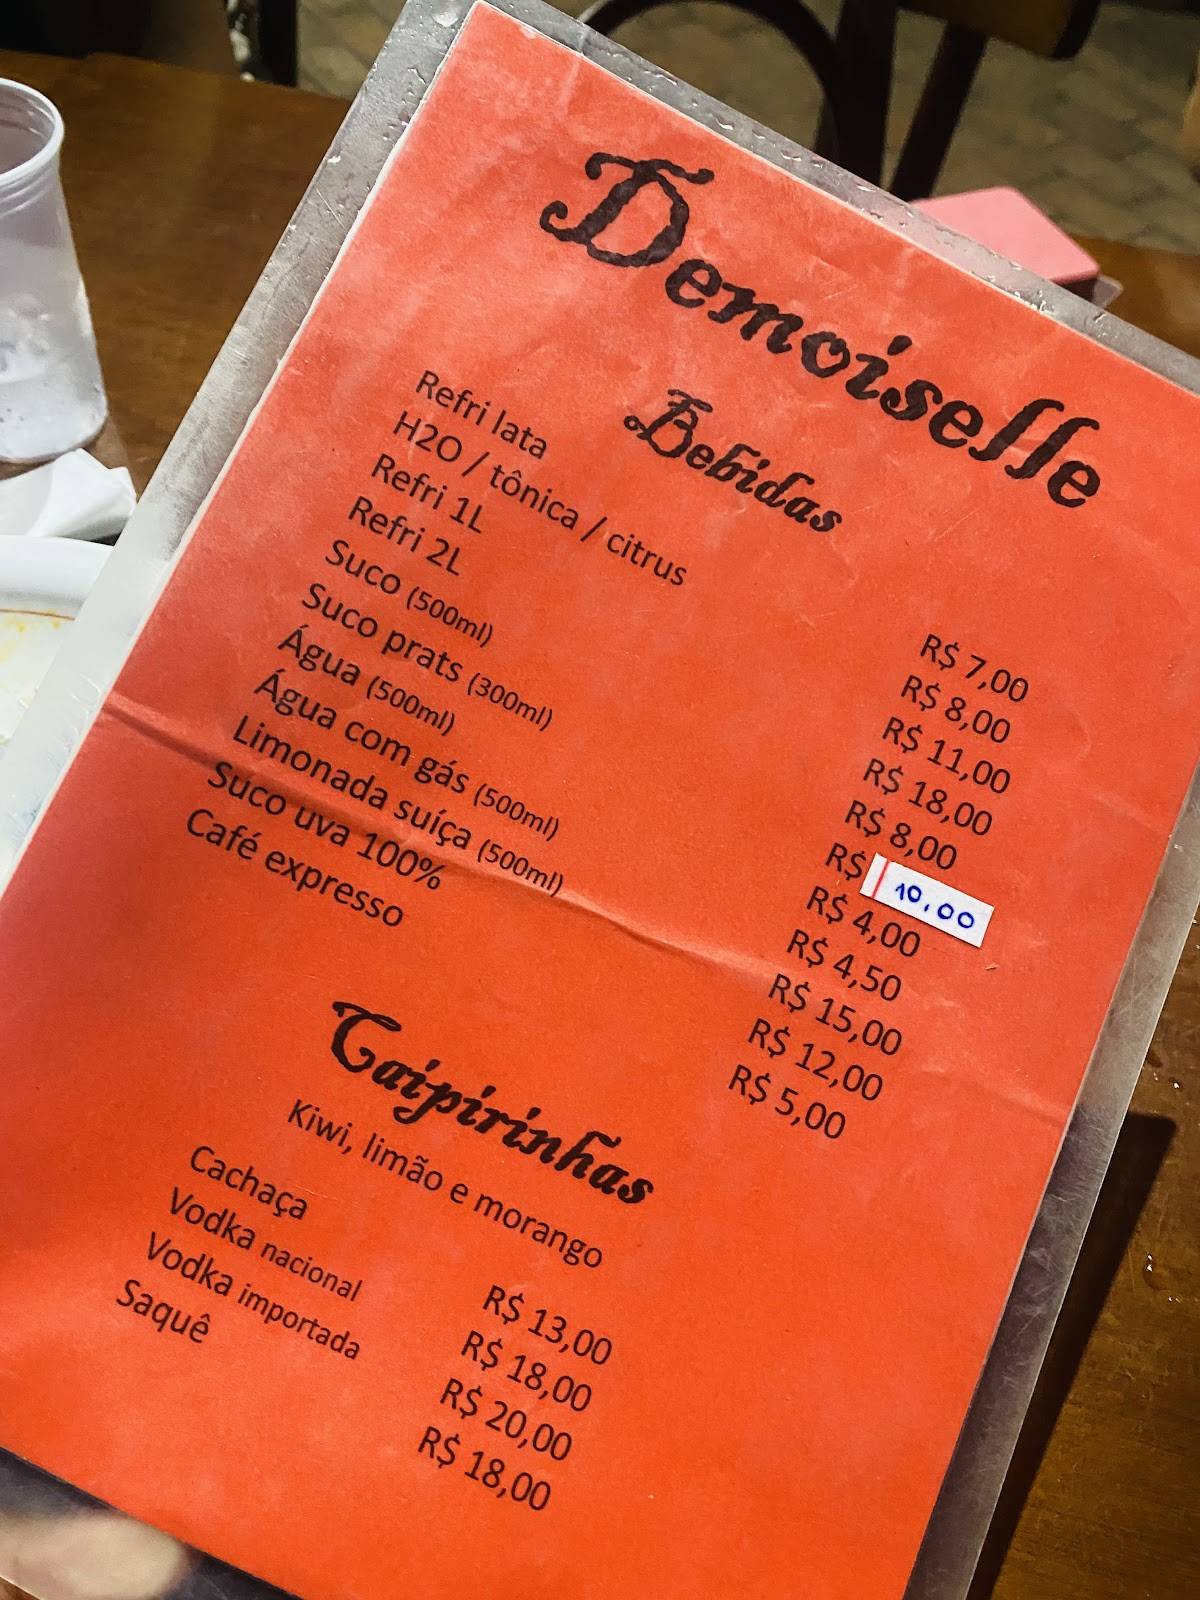 Demoiselle
Bebidas
Refri lata R$ 7,00
H2O / tônica / citrus R$ 8,00
Refri 1L R$ 11,00
Refri 2L R$ 18,00
Suco (500ml) R$ 8,00
Suco prats (300ml) R$ 10,00
Água (500ml) R$ 4,00
Água com gás (500ml) R$ 4,50
Limonada suíça (500ml) R$ 15,00
Suco uva 100% R$ 12,00
Café expresso R$ 5,00
Caipirinhas
Kiwi, limão e morango
Cachaça R$ 13,00
Vodka nacional R$ 18,00
Vodka importada R$ 20,00
Saquê R$ 18,00